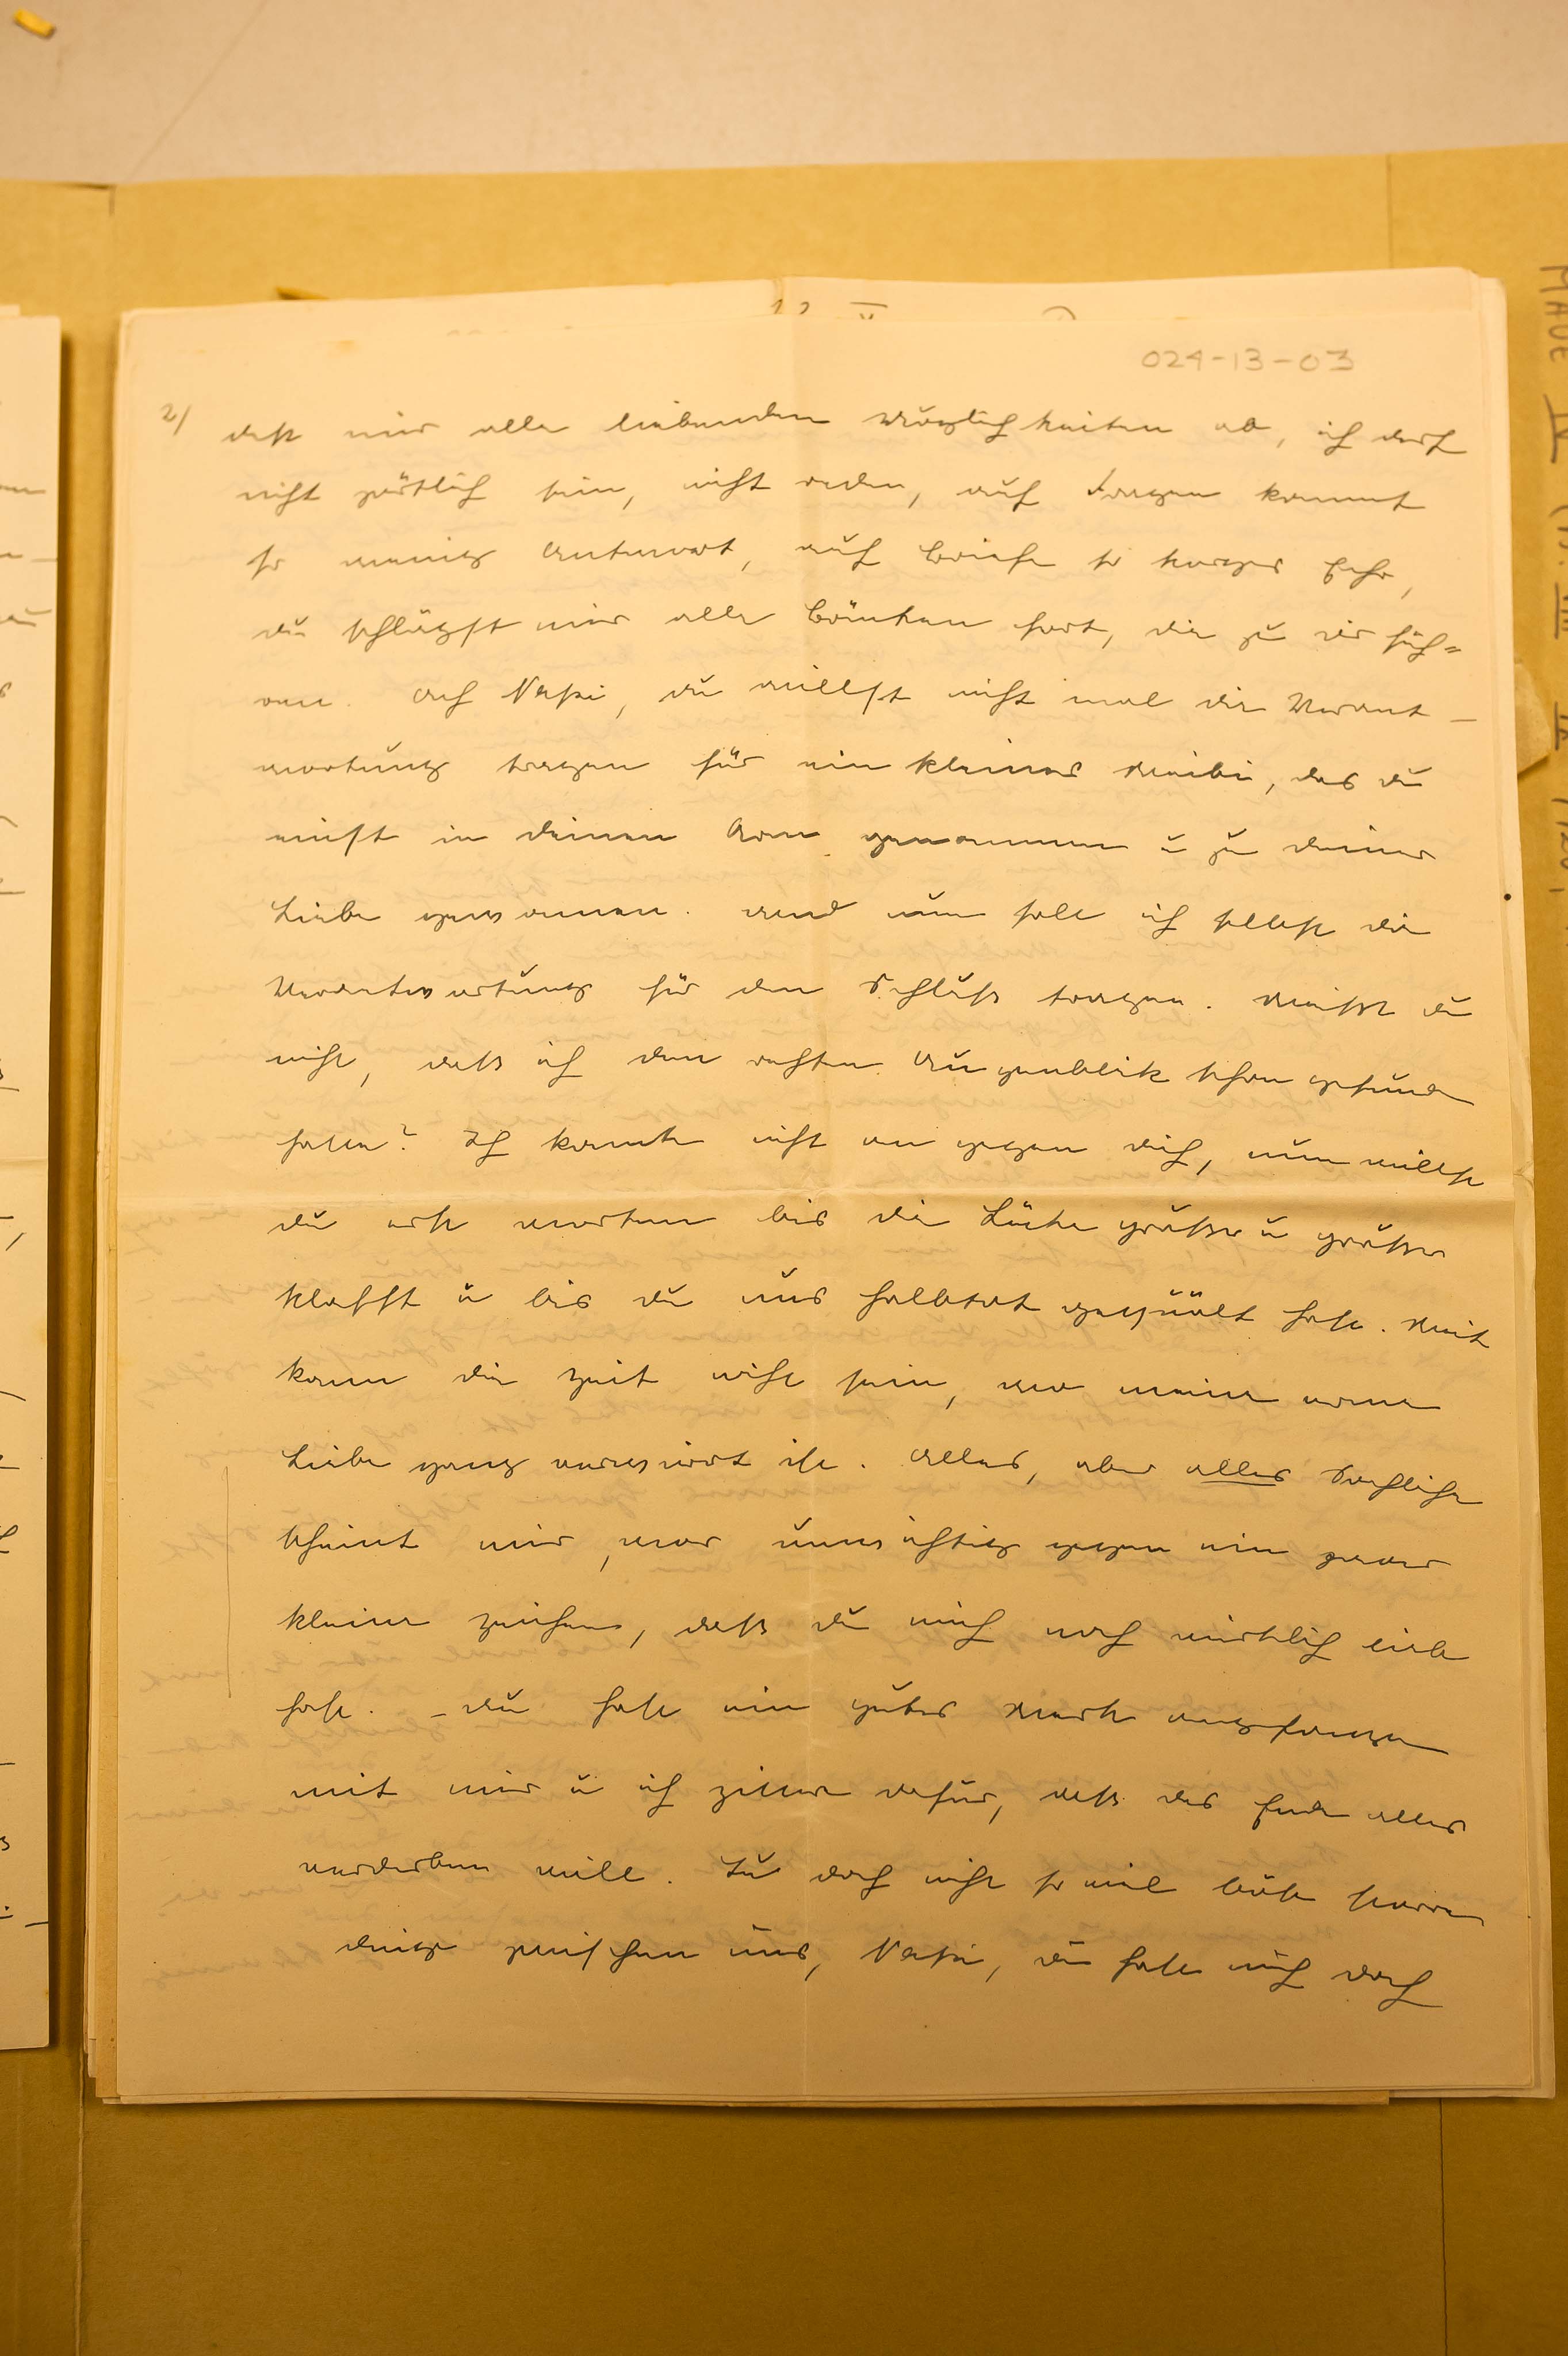 024-13-03
2/ dest mir alle liebenden Möglichkeiten ab, ich darf
nicht zärtlich sein, nicht reden, auf Fragen kommt
so wenig Antwort, auf Briefe so karges Echo,
du schlägst mir alle Brücken fort, die zu dir füh=
ren. Ach du willst nicht mal die Verant-
wortung tragen für ein kleines Weibi, das du
einst in deinen Arm genommen u zu deiner
Liebe gewonnen. Und nun soll ich selbst die
Verantwortung für den Schluss tragen. Meinst du
nicht, dass ich den rechten Augenblick schon gefunden
hatte? Ich konnte nicht an gegen dich, nun willst
du erst warten bis die Lücke größer u größer
klafft u bis du uns halbtot gequält hast. Weit
kann die Zeit nicht sein, wo meine arme
Liebe ganz verwirrt ist. Alles, aber alles Sachliche
scheint mir, war unwichtig gegen ein paar
kleine Zeichen, dass du mich noch wirklich lieb
hast. – Du hast ein gutes Werk angefangen
mit mir u ich zittere dafür, dass das Ende alles
verderben will. Tu doch nicht so viel böse
zwischen uns, du hast mich doch